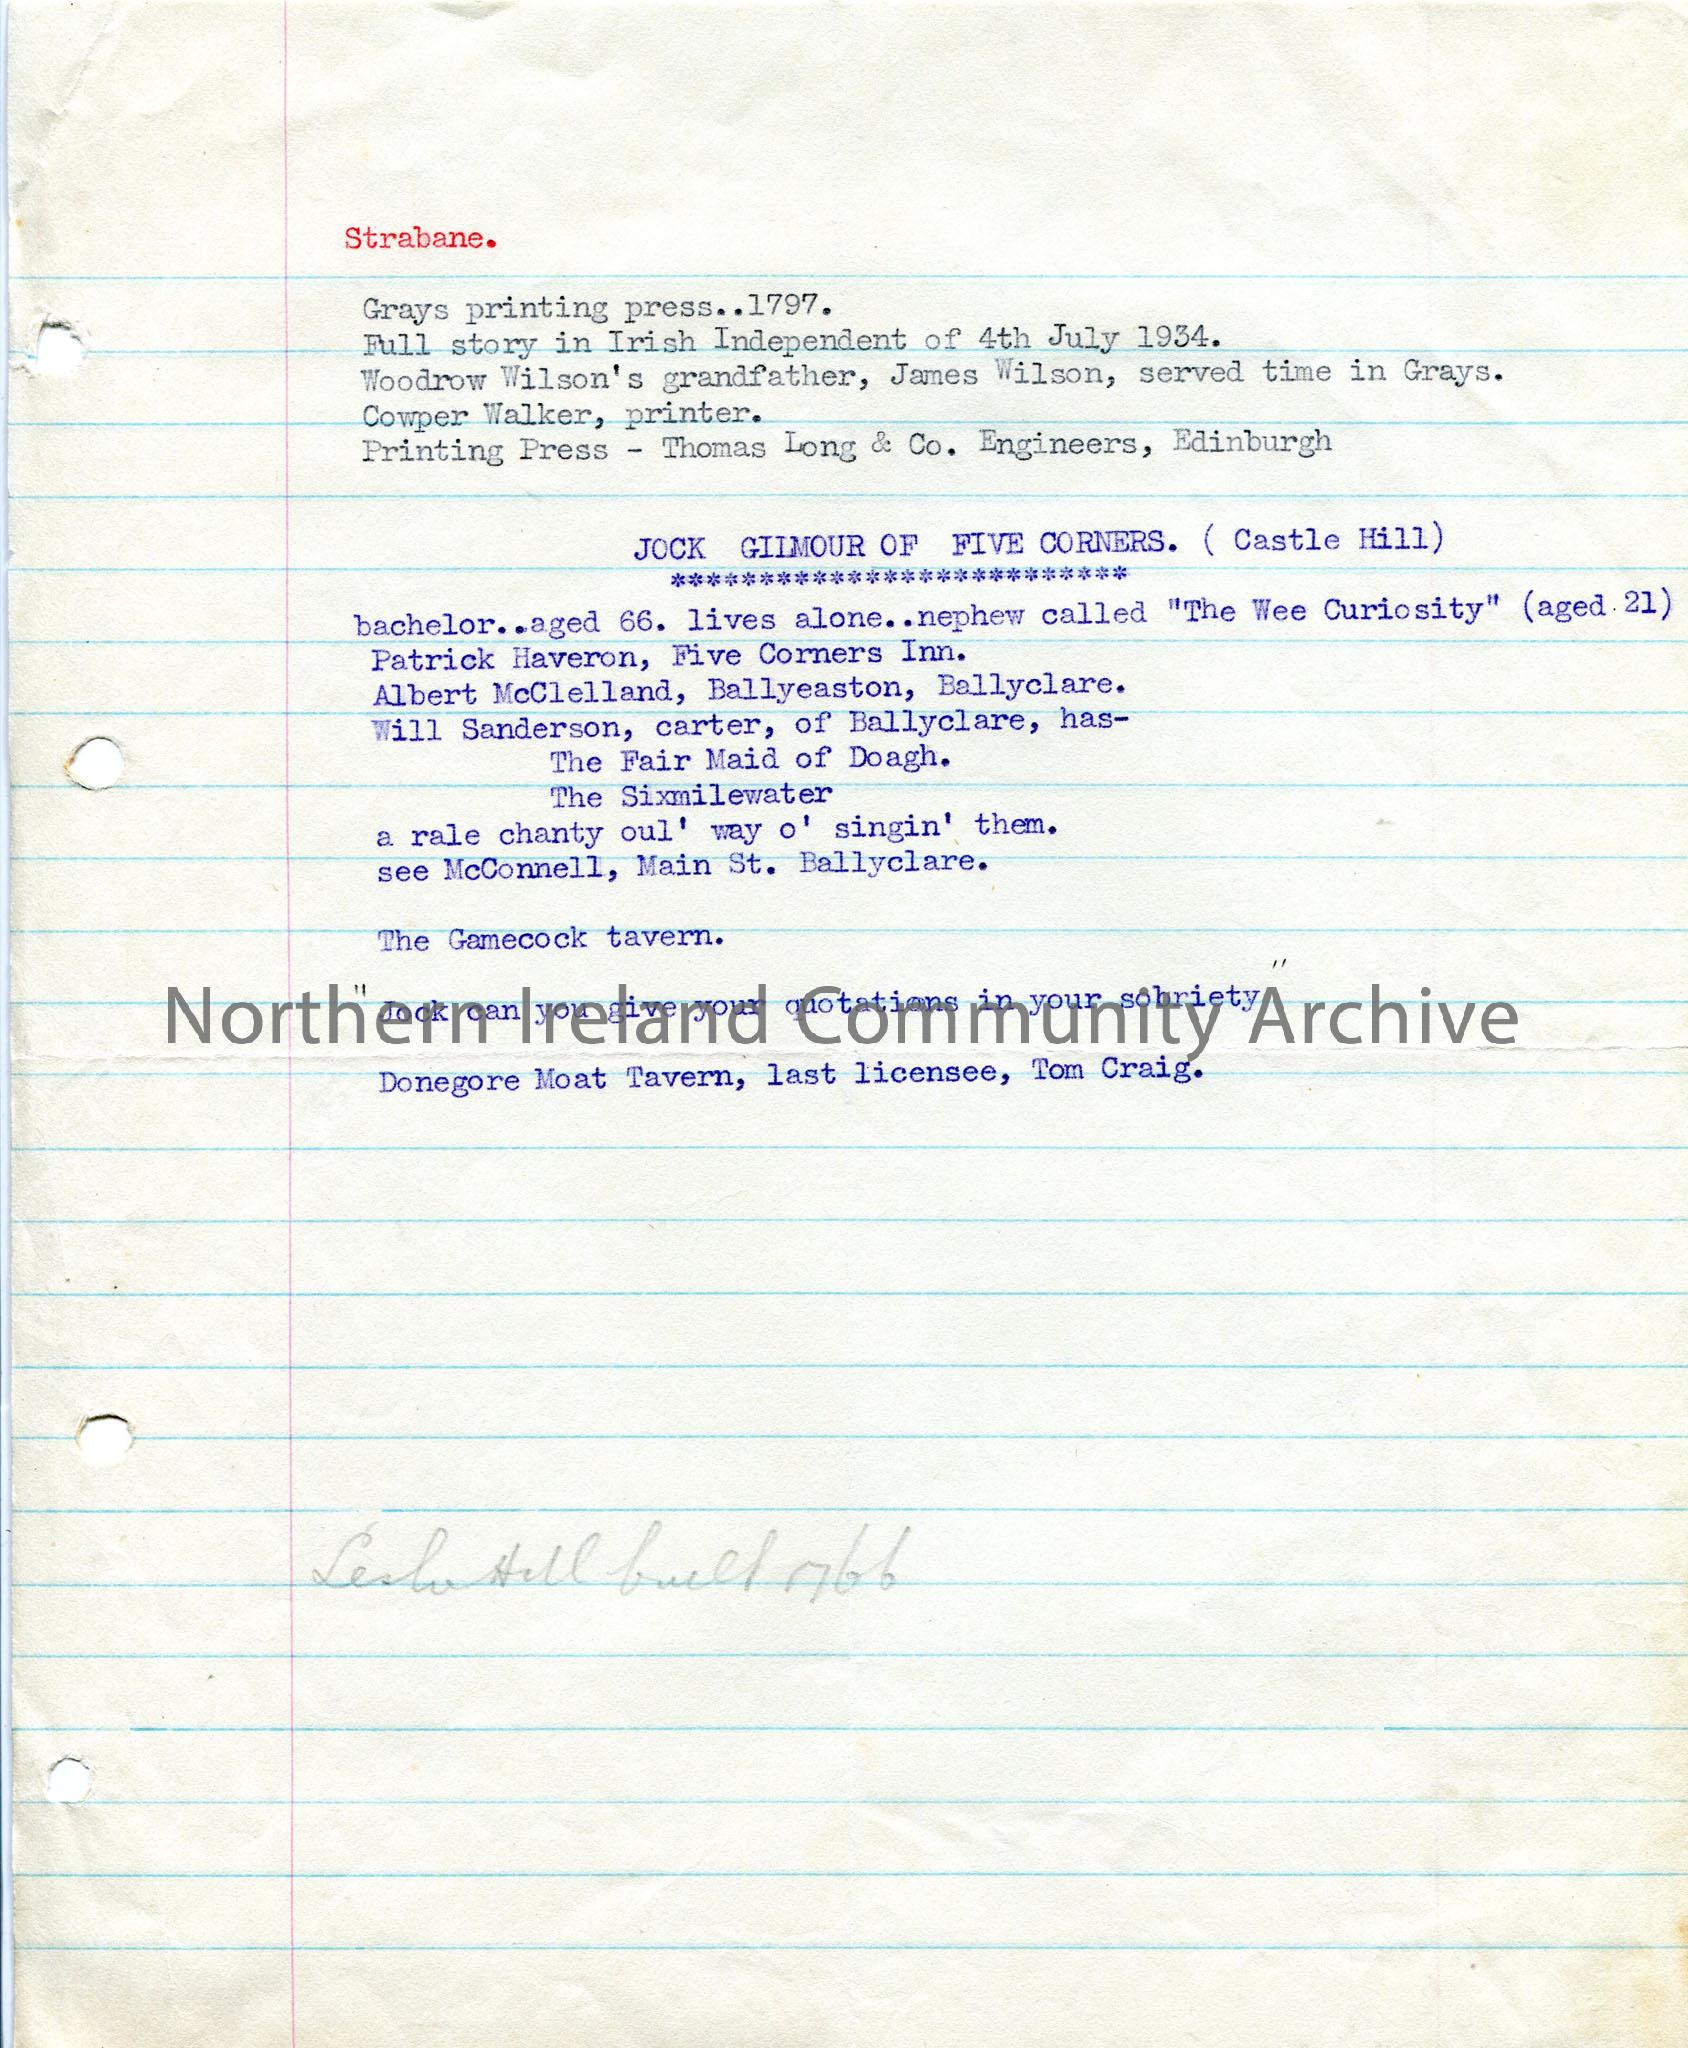 Strabane.
Grays printing press..1797.
Full story in Irish Independent of 4th July 1934.
Woodrow Wilson's grandfather, James Wilson, served time in Grays.
Cowper Walker, printer.
Printing Press - Thomas Long & Co. Engineers, Edinburgh
JOCK GILMOUR OF FIVE CORNERS. ( Castle Hill)
**************************
bachelor..aged 66. lives alone..nephew called "The Wee Curiosity" (aged 21)
Patrick Haveron, Five Corners Inn.
Albert McClelland, Ballyeaston, Ballyclare.
Will Sanderson, carter, of Ballyclare, has-
The Fair Maid of Doagh.
The Sixmilewater
a rale chanty oul' way o' singin' them.
see McConnell, Main St. Ballyclare.
The Gamecock tavern.
"Jock can you give your quotations in your sobriety"
Northern Ireland Community Archive
Donegore Moat Tavern, last licensee, Tom Craig.
Leslie Hill built 1766